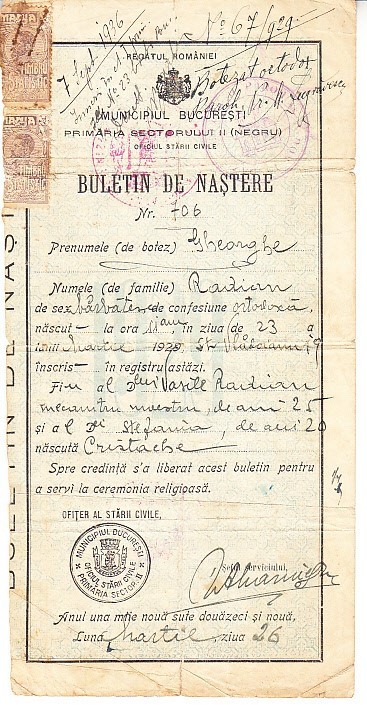 No 67/929.
7 Sept. 1936
Botezat ortodox
REGATUL ROMÂNIEI
MUNICIPIUL BUCUREȘTI
PRIMĂRIA SECTORULUI II (NEGRU)
OFICIUL STĂRII CIVILE
BULETIN DE NAȘTERE
Nr. 706
Prenumele (de botez) Gheorghe
Numele (de familie) Radian
de sex bărbătesc de confesiune ortodoxă,
născut la ora 11 am în ziua de 23 a
lunii Martie 1929
înscris în registru astăzi.
Fiu al Vasile Radian
mecanitru maestru, de ani 25
și al Stefania, de ani 20
născută Cristache
Spre credință s'a liberat acest buletin pentru
a servi la ceremonia religioasă.
OFIȚER AL STĂRII CIVILE,
MUNICIPIUL BUCUREȘTI
OFICIUL STĂRII CIVILE
PRIMĂRIA SECTOR. II
Șeful serviciului,
Anul una mie nouă sute douăzeci și nouă,
Luna Martie ziua 26
BULETIN DE NAȘ